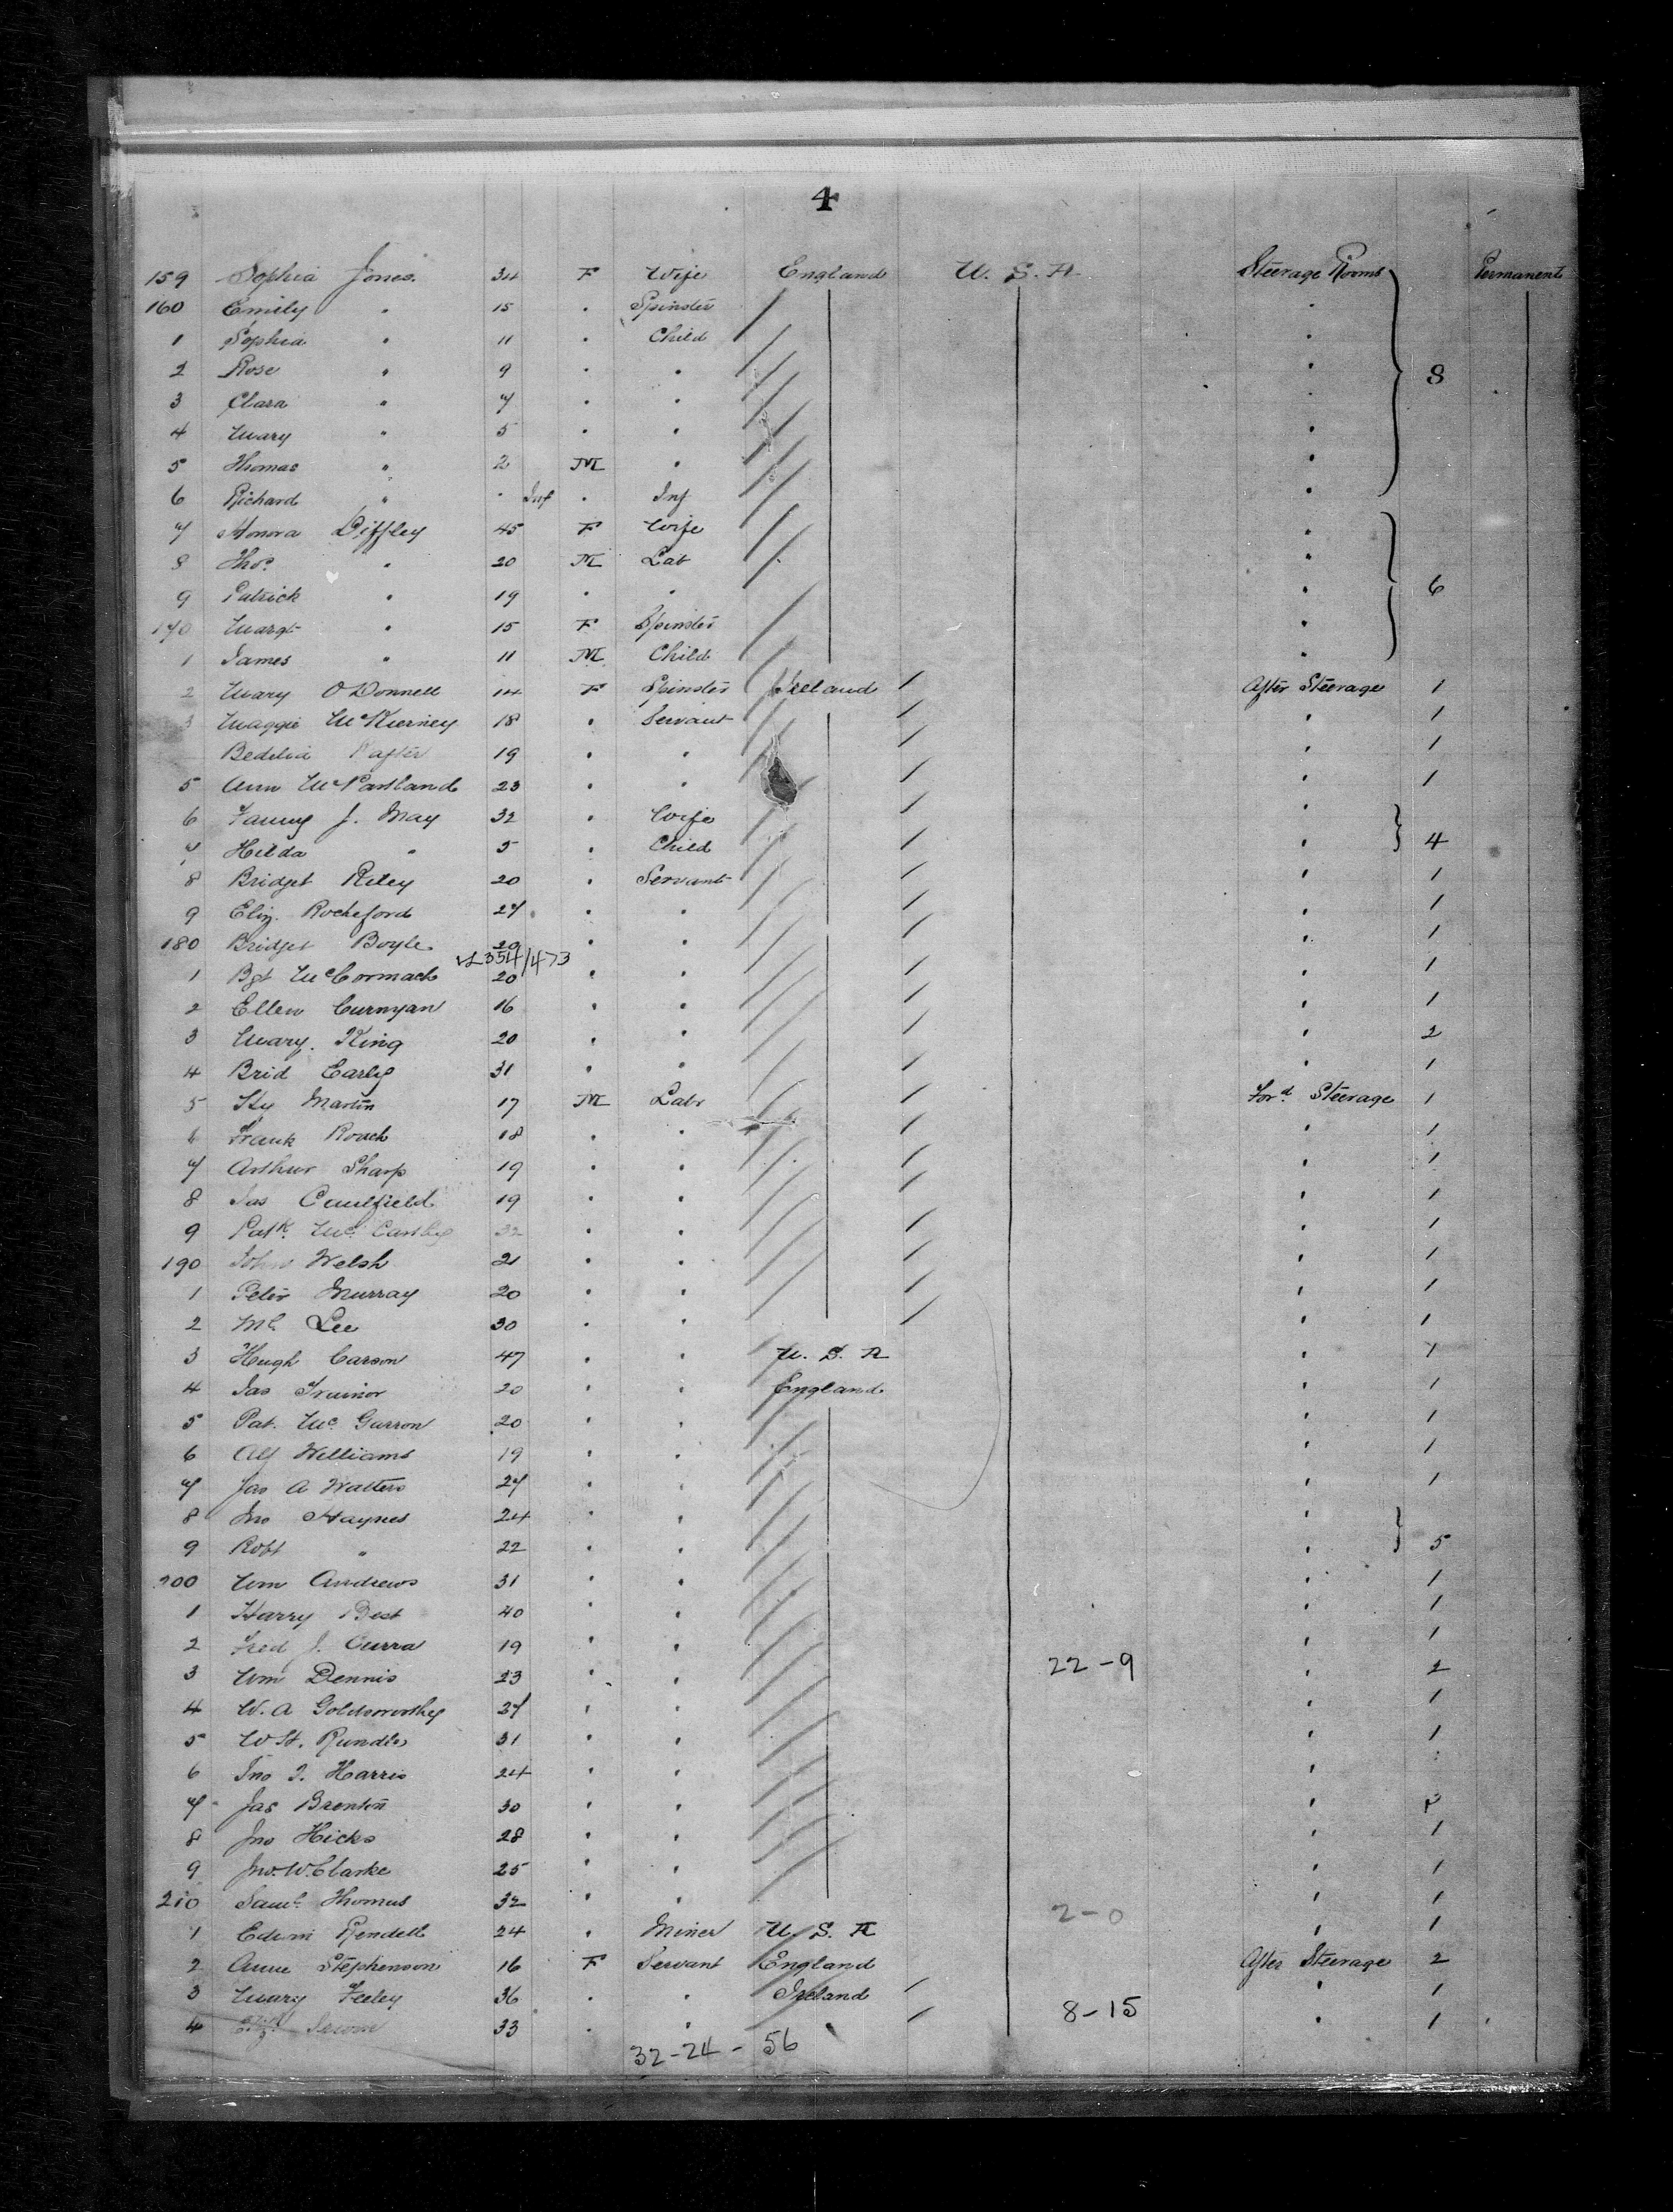 4
159 Sophia Jones. 34 F Wife England U. S. A. Steerage Rooms Permanent
160 Emily " 15 " Spinster / "
1 Sophia " 11 " Child / "
2 Rose " 9 " " / " 8
3 Clara " 7 " " / "
4 Mary " 5 " " / "
5 Thomas " 2 M " / "
6 Richard " " Inf " Inf / "
7 Honora Diffley 45 F Wife / "
8 Thos. " 20 M Lab / "
9 Patrick " 19 " " / " 6
170 Margt " 15 F Spinster / "
1 James " 11 M Child / "
2 Mary O'Donnell 14 F Spinster Ireland / After Steerage 1
3 Maggie McKierney 18 " Servant / / " 1
Bedelia 19 " " / / " 1
5 Ann McPartland 23 " " / / " 1
6 Fanny J. May 32 " Wife / / "
7 Hilda " 5 " Child / / " 4
8 Bridget Riley 20 " Servant / / " 1
9 Eliz. Rocheford 27 " " / / " 1
180 Bridget Boyle 20 " " / / " 1
354/473
1 Bgt McCormack 20 " " / / " 1
2 Ellen Curnyan 16 " " / / " 1
3 Mary King 20 " " / / " 2
4 Brid Early 31 " " / / " 1
5 Hy Martin 17 M Labr / / Ford. Steerage 1
6 Frank Roach 18 " " / / " 1
7 Arthur Sharp 19 " " / / " 1
8 Jas Caulfield 19 " " / / " 1
9 Patk. McCarthy 32 " " / / " 1
190 John Welsh 21 " " / / " 1
1 Peter Murray 20 " " / / " 1
2 Ml. Lee 30 " " / / " 1
3 Hugh Carson 47 " " U. S. A " 1
4 Jas Trainor 20 " " England " 1
5 Pat. Mc Garron 20 " " / " 1
6 Alf Williams 19 " " / " 1
7 Jas A Walters 27 " " / " 1
8 Jno Haynes 24 " " / "
9 Robt " 22 " " / " 5
200 Wm Andrews 31 " " / " 1
1 Harry Best 40 " " / " 1
2 Fred J. Curra 19 " " / " 1
3 Wm Dennis 23 " " / 22-9 " 2
4 W. A Goldsworthy 27 " " / " 1
5 W H. Rundle 31 " " / " 1
6 Jno J. Harris 24 " " / "
7 Jas Brenton 30 " " / "
8 Jno Hicks 28 " " / " 1
9 Jno. W. Clarke 25 " " / " 1
210 Saml. Thomas 32 " " / 2-0 " 1
1 Edwin Rendell 24 " Miner U. S. A " 1
2 Anne Stephenson 16 F Servant England After Steerage 2
3 Mary Feeley 36 " " Ireland / " 1
4 33 " " " / 8-15 " 1
32-24 - 56